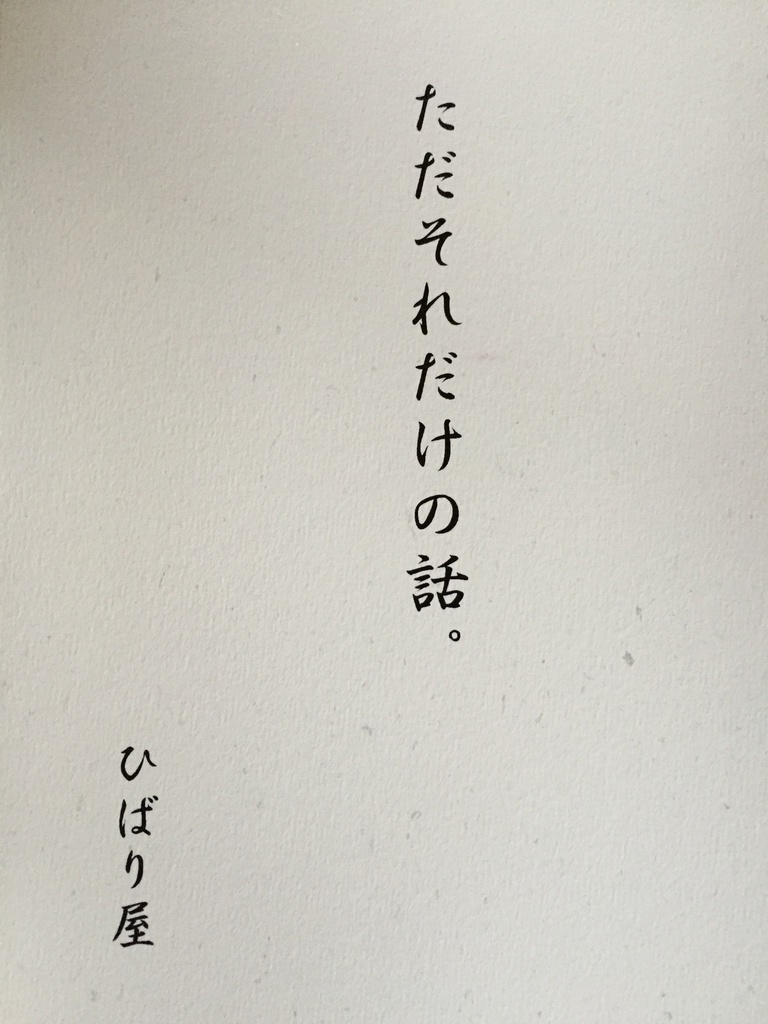 ただそれだけの話。
ひばり屋